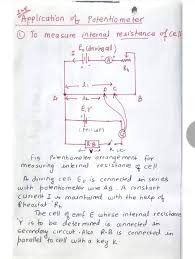 Application of Potentiometer
① To measure internal resistance of cell
E₀ (driving cell)
I
A
Rh
l₁
l₂
A
B
E, r
R.B
K
Fig. Potentiometer arrangement for
measuring internal resistance of cell
A driving cell E₀ is connected in series
with potentiometer wire AB. A constant
current I is maintained with the help of
Rheostat Rh
The cell of emf E whose internal resistance
'r' is to be determined is connected in
secondary circuit. Also R.B is connected in
parallel to cell with a key K